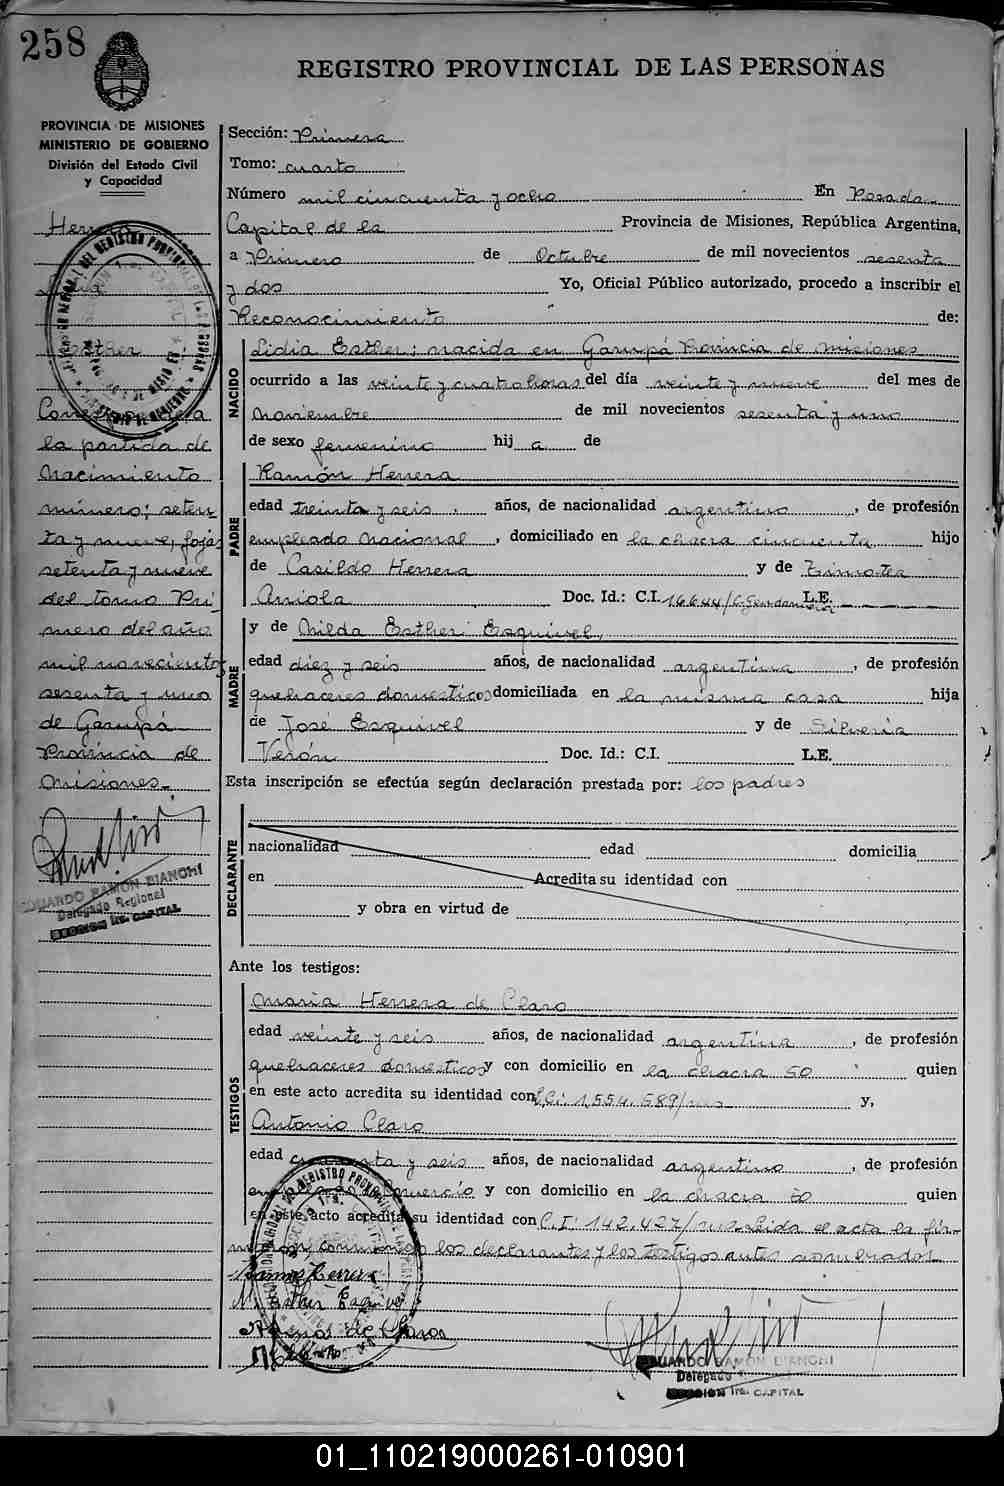 258
REGISTRO PROVINCIAL DE LAS PERSONAS
PROVINCIA DE MISIONES
MINISTERIO DE GOBIERNO
División del Estado Civil
y Capacidad
Herrera
Lidia
Esther
Corresponde a
la partida de
Nacimiento
número; seten
ta y nueve, fojas
setenta y nueve
del tomo Pri
mero del año
mil novecientos
sesenta y uno
de Garupá
Provincia de
Misiones.
EDUARDO RAMON BIANCHI
Delegado Regional
SECCION 1ra. CAPITAL
Sección: Primera
Tomo: cuarto
Número mil cincuenta y ocho En Posadas
Capital de la Provincia de Misiones, República Argentina,
a Primero de Octubre de mil novecientos sesenta
y dos Yo, Oficial Público autorizado, procedo a inscribir el
Reconocimiento de:
NACIDO
Lidia Esther; nacida en Garupá Provincia de Misiones
ocurrido a las veinte y cuatro horas del día veinte y nueve del mes de
Noviembre de mil novecientos sesenta y uno
de sexo femenino hij a de
PADRE
Ramón Herrera
edad treinta y seis años, de nacionalidad argentino, de profesión
empleado Nacional, domiciliado en la chacra cincuenta hijo
de Casildo Herrera y de Timotea
Arriola Doc. Id.: C.I. 16644/G. L.E.
MADRE
y de Nilda Esther Esquivel,
edad diez y seis años, de nacionalidad argentina, de profesión
quehaceres domesticos domiciliada en la misma casa hija
de José Esquivel y de Silveria
Verón Doc. Id.: C.I. L.E.
Esta inscripción se efectúa según declaración prestada por: los padres
DECLARANTE
nacionalidad edad domicilia
en Acredita su identidad con
y obra en virtud de
Ante los testigos:
TESTIGOS
Maria Herrera de Claro
edad veinte y seis años, de nacionalidad argentina, de profesión
quehaceres domesticos y con domicilio en la chacra 50 quien
en este acto acredita su identidad con C.I. 1.554.589/mis y,
Antonio Claro
edad cuarenta y seis años, de nacionalidad argentino, de profesión
empleado comercio y con domicilio en la chacra 50 quien
en este acto acredita su identidad con C.I. 142.427/mis. Leida el acta la fir-
maron conmigo los declarantes y los testigos antes nombrados.
Ramon Herrera
N. Esther Esquivel
Herrera de Claro
EDUARDO RAMON BIANCHI
Delegado
SECCION 1ra. CAPITAL
01_110219000261-010901